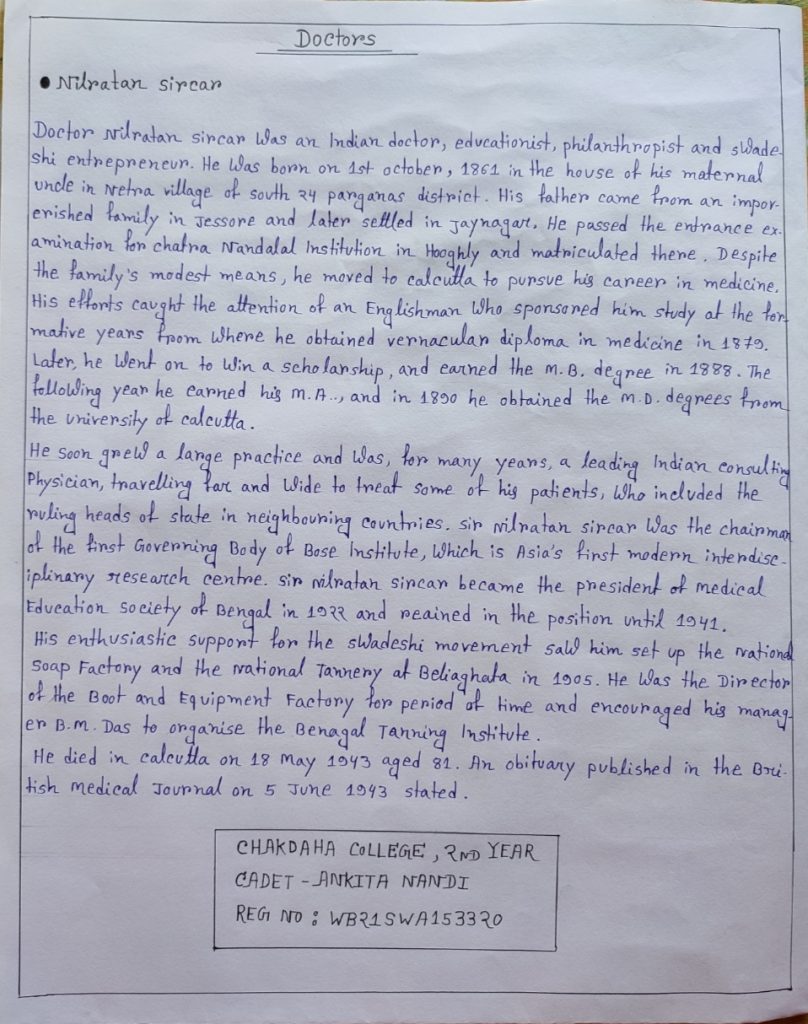 Doctors
• Nilratan sircar
Doctor Nilratan sircar Was an Indian doctor, educationist, philanthropist and swade-
shi entrepreneur. He Was born on 1st october, 1861 in the house of his maternal
uncle in Netra village of south 24 parganas district. His father came from an impor-
erished family in Jessore and later settled in Jaynagar. He passed the entrance ex-
amination for chatra Nandalal Institution in Hooghly and matriculated there. Despite
the family's modest means, he moved to calcutta to pursue his career in medicine.
His efforts caught the attention of an Englishman Who sponsored him study at the for-
mative years from Where he obtained vernacular diploma in medicine in 1879.
Later, he Went on to Win a scholarship, and earned the M.B. degree in 1888. The
following year he earned his M.A.., and in 1890 he obtained the M.D. degrees from
the university of calcutta.
He soon grew a large practice and Was, for many years, a leading Indian consulting
Physician, travelling far and Wide to treat some of his patients, Who included the
ruling heads of state in neighbouring countries. sir Nilratan sircar Was the chairman
of the first Governing Body of Bose Institute, Which is Asia's first modern interdisc-
iplinary research centre. sir nilratan sircar became the president of medical
Education society of Bengal in 1922 and reained in the position until 1941.
His enthusiastic support for the swadeshi movement saw him set up the national
soap Factory and the national Tannery at Beliaghata in 1905. He Was the Director
of the Boot and Equipment Factory for period of time and encouraged his manag-
er B.M. Das to organise the Benagal Tanning Institute.
He died in calcutta on 18 May 1943 aged 81. An obituary published in the Bri-
tish Medical Journal on 5 June 1943 stated.
CHAKDAHA COLLEGE, 2ND YEAR
CADET - ANKITA NANDI
REG NO : WB21SWA153320